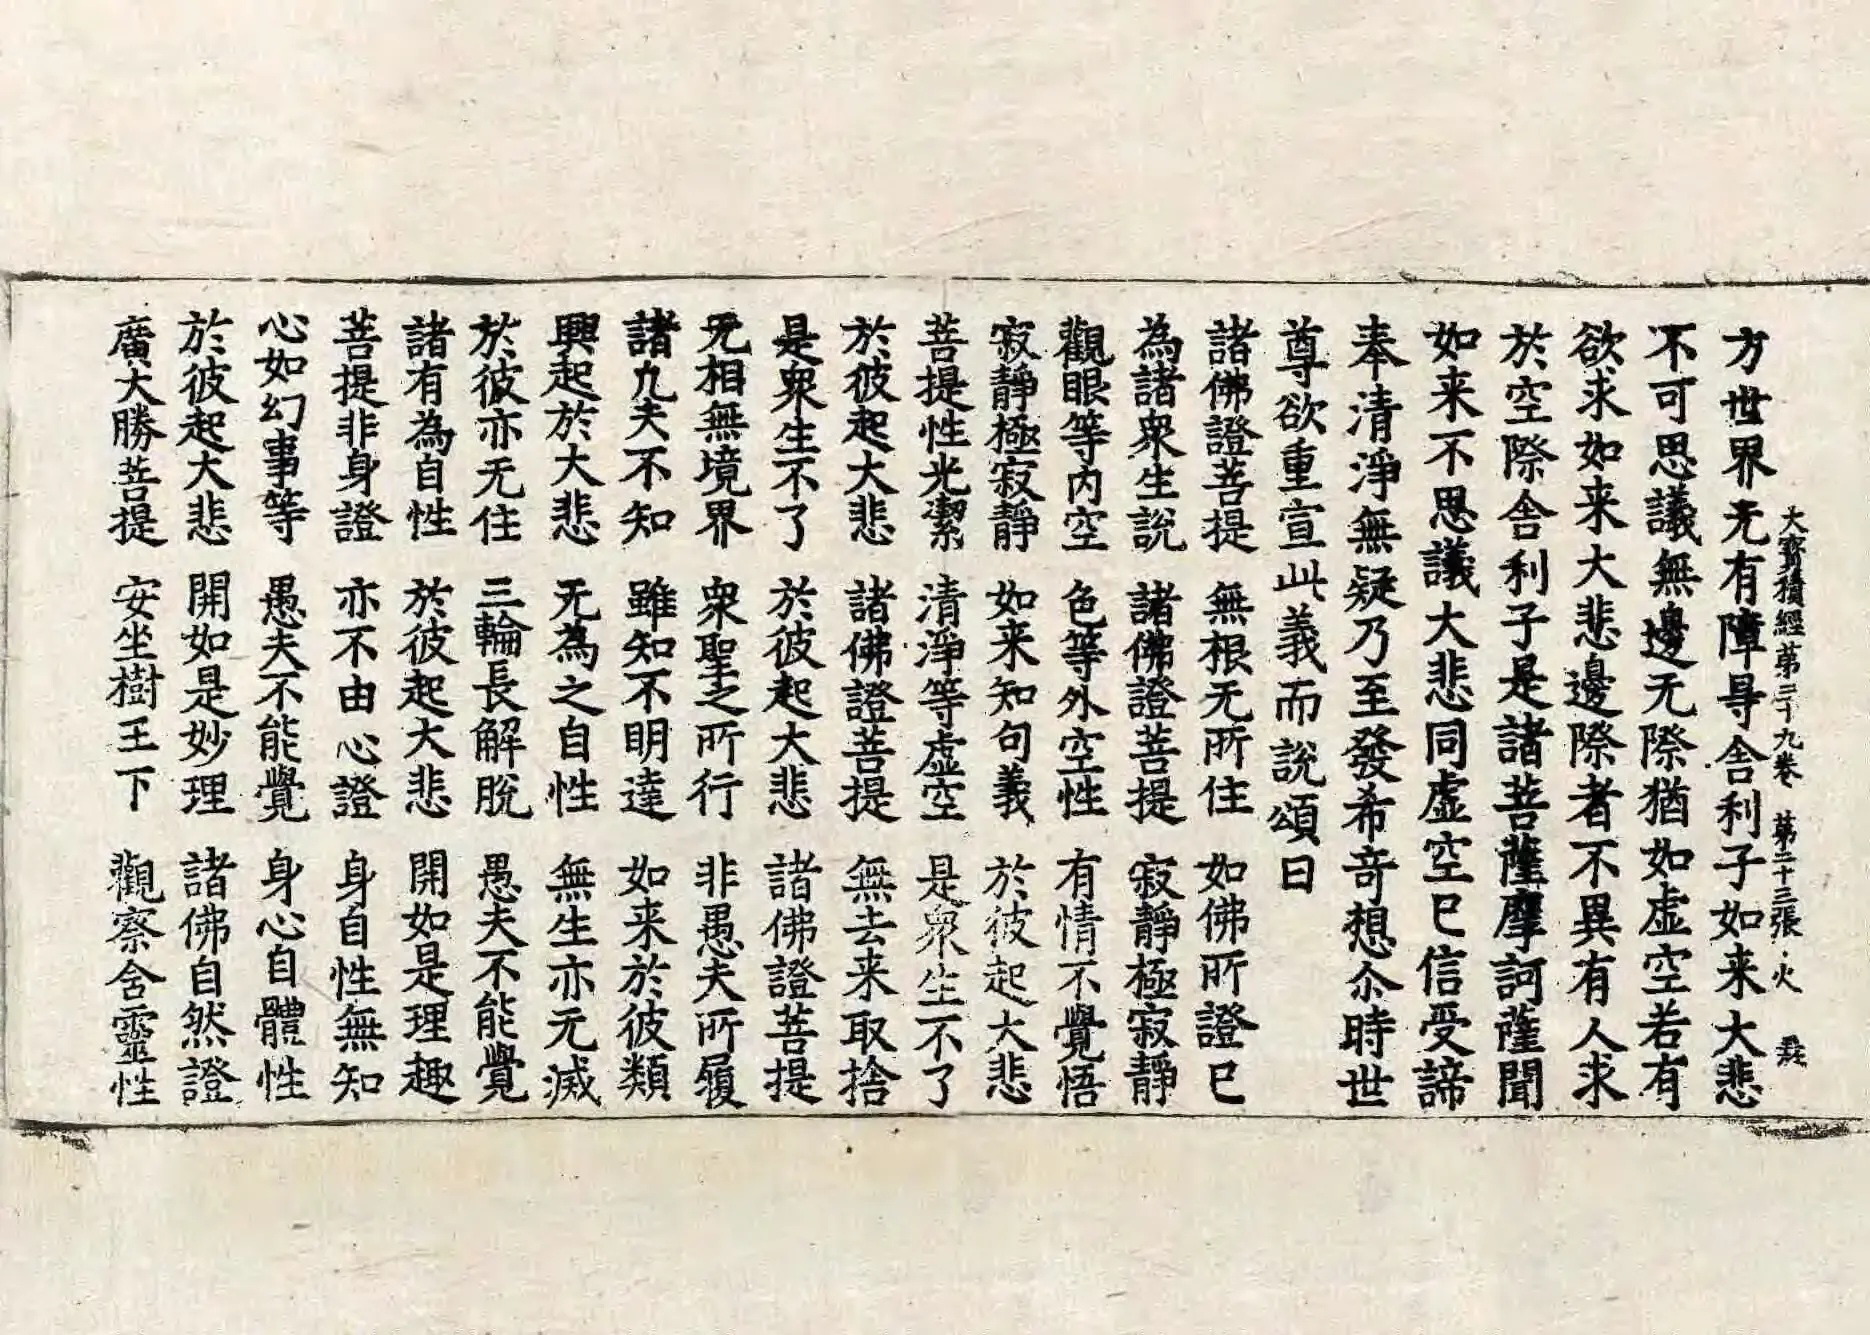 大寳積經第三十九卷　第二十三張　火
方世界无有障㝵舎利子如来大悲
不可思議無邊无際猶如虚空若有
欲求如来大悲邊際者不異有人求
於空際舎利子是諸菩薩摩訶薩聞
如来不思議大悲同虚空已信受諦
奉清淨無疑乃至發希奇想尒時世
尊欲重宣此義而說頌曰
諸佛證菩提　無根无所住　如佛所證已
為諸衆生說　諸佛證菩提　寂靜極寂靜
觀眼等內空　色等外空性　有情不覺悟
寂靜極寂靜　如来知句義　於彼起大悲
菩提性光潔　清淨等虚空　是衆生不了
於彼起大悲　諸佛證菩提　無去来取捨
是衆生不了　於彼起大悲　諸佛證菩提
无相無境界　衆聖之所行　非愚夫所履
諸凡夫不知　雖知不明達　如来於彼類
興起於大悲　无為之自性　無生亦无滅
於彼亦无住　三輪長解脫　愚夫不能覺
諸有為自性　於彼起大悲　開如是理趣
菩提非身證　亦不由心證　身自性無知
心如幻事等　愚夫不能覺　身心自體性
於彼起大悲　開如是妙理　諸佛自然證
廣大勝菩提　安坐樹王下　觀察含靈性